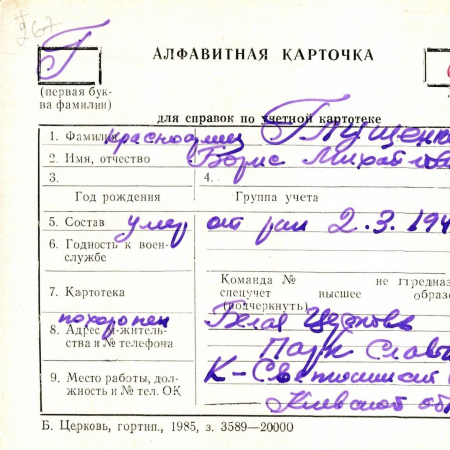 267
Г
АЛФАВИТНАЯ КАРТОЧКА
(первая бук-
ва фамилии)
для справок по учетной картотеке
1. Фамилия красноармеец Глущенко
2. Имя, отчество Борис Михайлови
3. 4.
Год рождения Группа учета
5. Состав умер от ран 2.3.194
6. Годность к воен-
службе
Команда № не предназ
7. Картотека спецучет высшее образо
(подчеркнуть)
похоронен Белая Церковь
8. Адрес м-житель-
ства и № телефона Парк Славы
9. Место работы, дол-
жность и № тел. ОК
К-Святошинский
Киевской об
Б. Церковь, гортип., 1985, з. 3589—20000